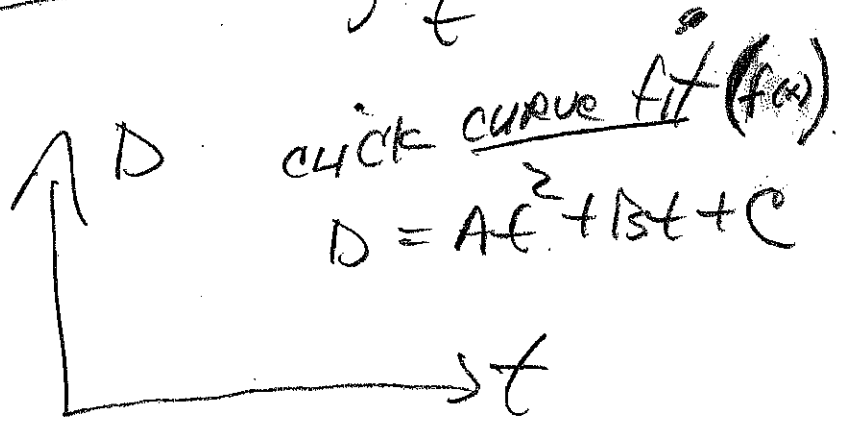 t
click curve fit (f(x))
D
D = At² + Bt + C
t